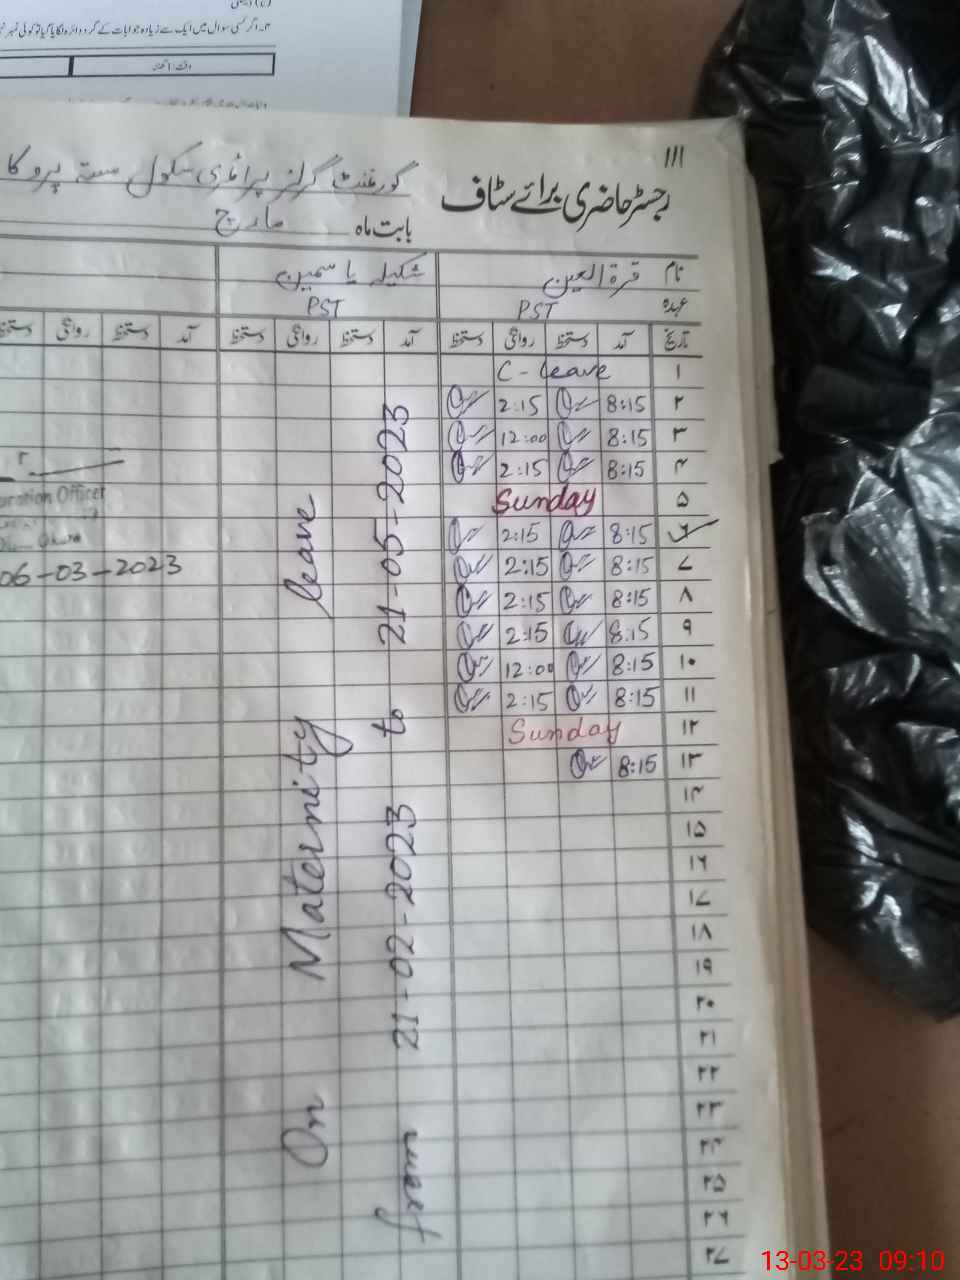 ۳۔ اگر کسی سوال میں ایک سے زیادہ جوابات کے گرد دائرہ لگایا گیا تو کوئی نمبر
وقت: 1 گھنٹہ
111
رجسٹر حاضری برائے سٹاف گورنمنٹ گرلز پرائمری سکول
بابت ماہ مارچ
نام قرۃ العین شکیلہ یاسمین
عہدہ PST PST
تاریخ آمد دستخط روانگی دستخط آمد دستخط روانگی دستخط آمد دستخط روانگی دستخط
۱ C - leave
۲ 8:15 2:15
۳ 8:15 12:00
۴ 8:15 2:15
۵ Sunday
۶ 8:15 2:15
۷ 8:15 2:15
۸ 8:15 2:15
۹ 8:15 2:15
۱۰ 8:15 12:00
۱۱ 8:15 2:15
۱۲ Sunday
۱۳ 8:15
۱۴
۱۵
۱۶
۱۷
۱۸
۱۹
۲۰
۲۱
۲۲
۲۳
۲۴
۲۵
۲۶
۲۷
On Maternity leave
from 21-02-2023 to 21-05-2023
Officer
06-03-2023
13-03-23 09:10